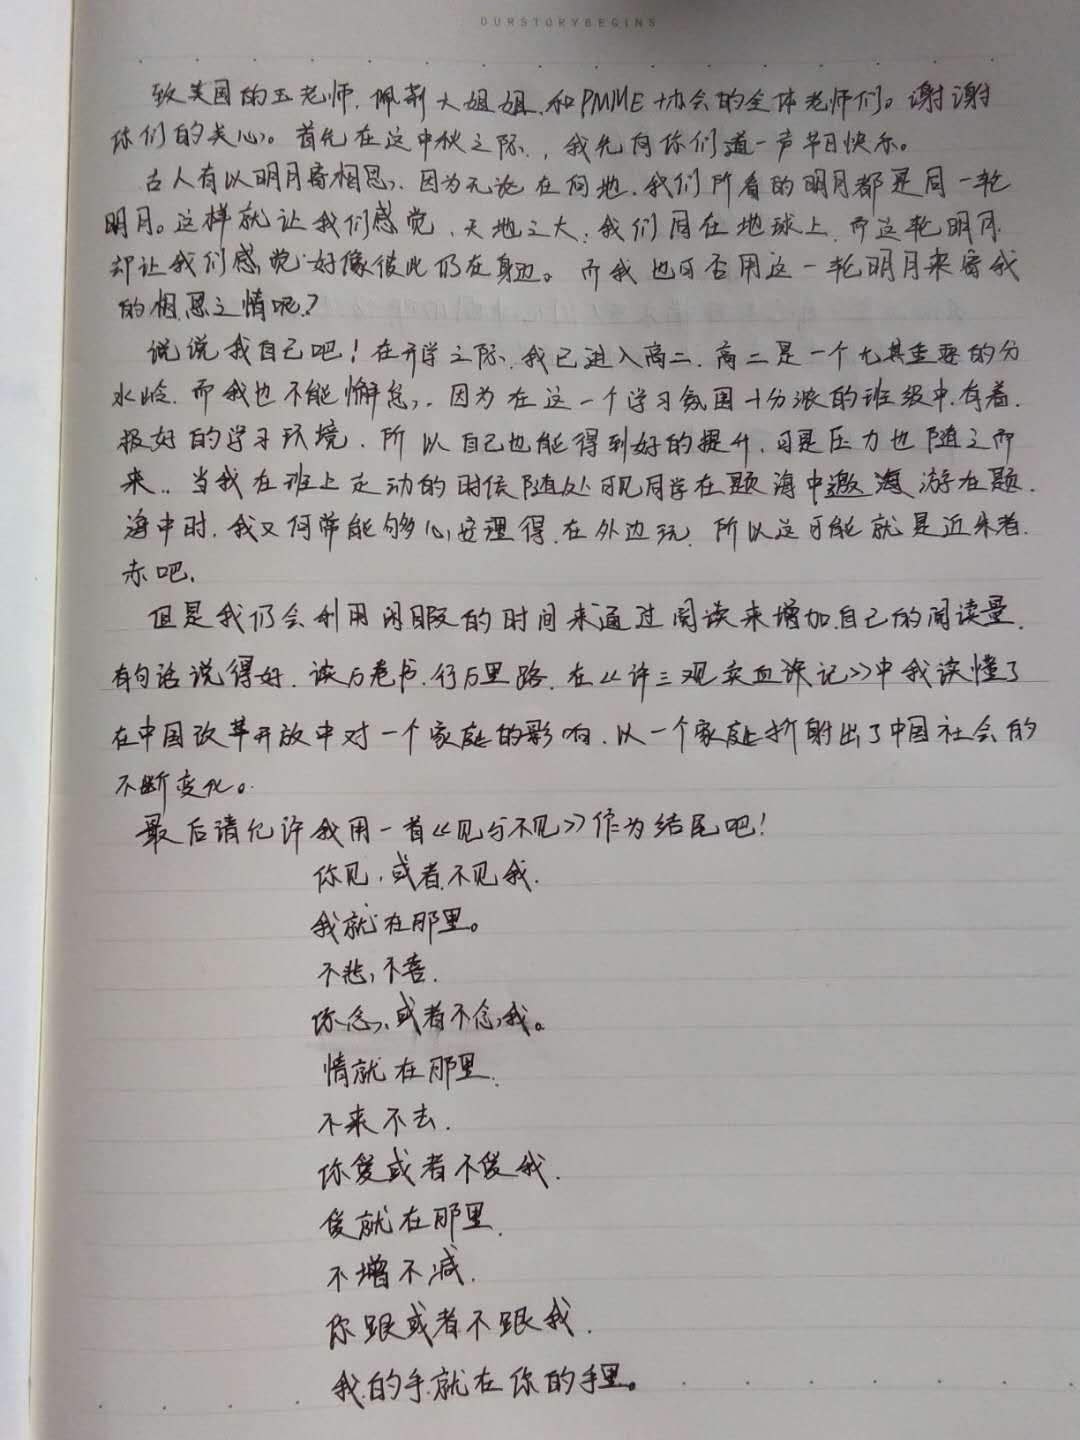 OURSTORYBEGINS
致美国的王老师,佩斯大姐姐,和PMME协会的全体老师们。谢谢
你们的关心。首先在这中秋之际,我先向你们道一声节日快乐。
古人有以明月寄相思,因为无论在何地,我们所看的明月都是同一轮
明月。这样就让我们感觉,天地之大,我们同在地球上,而这轮明月
却让我们感觉好像彼此仍在身边。而我也可否用这一轮明月来寄我
的相思之情呢?
说说我自己吧!在开学之际,我已进入高二,高二是一个尤其重要的分
水岭,而我也不能懈怠,因为在这一个学习氛围十分浓的班级中,有着
极好的学习环境,所以自己也能得到好的提升,可是压力也随之而
来,当我在班上走动的时候随处可见同学在题海中遨海游在题
海中时,我又何常能够心安理得,在外边玩,所以这可能就是近朱者
赤吧,
但是我仍会利用闲暇的时间来通过阅读来增加自己的阅读量,
有句话说得好,读万卷书,行万里路,在《许三观卖血许记》中我读懂了
在中国改革开放中对一个家庭的影响,以一个家庭折射出了中国社会的
不断变化。
最后请允许我用一首《见与不见》作为结尾吧!
你见,或者不见我,
我就在那里。
不悲,不喜,
你念,或者不念我。
情就在那里,
不来不去,
你爱或者不爱我,
爱就在那里,
不增不减,
你跟或者不跟我,
我的手就在你的手里。